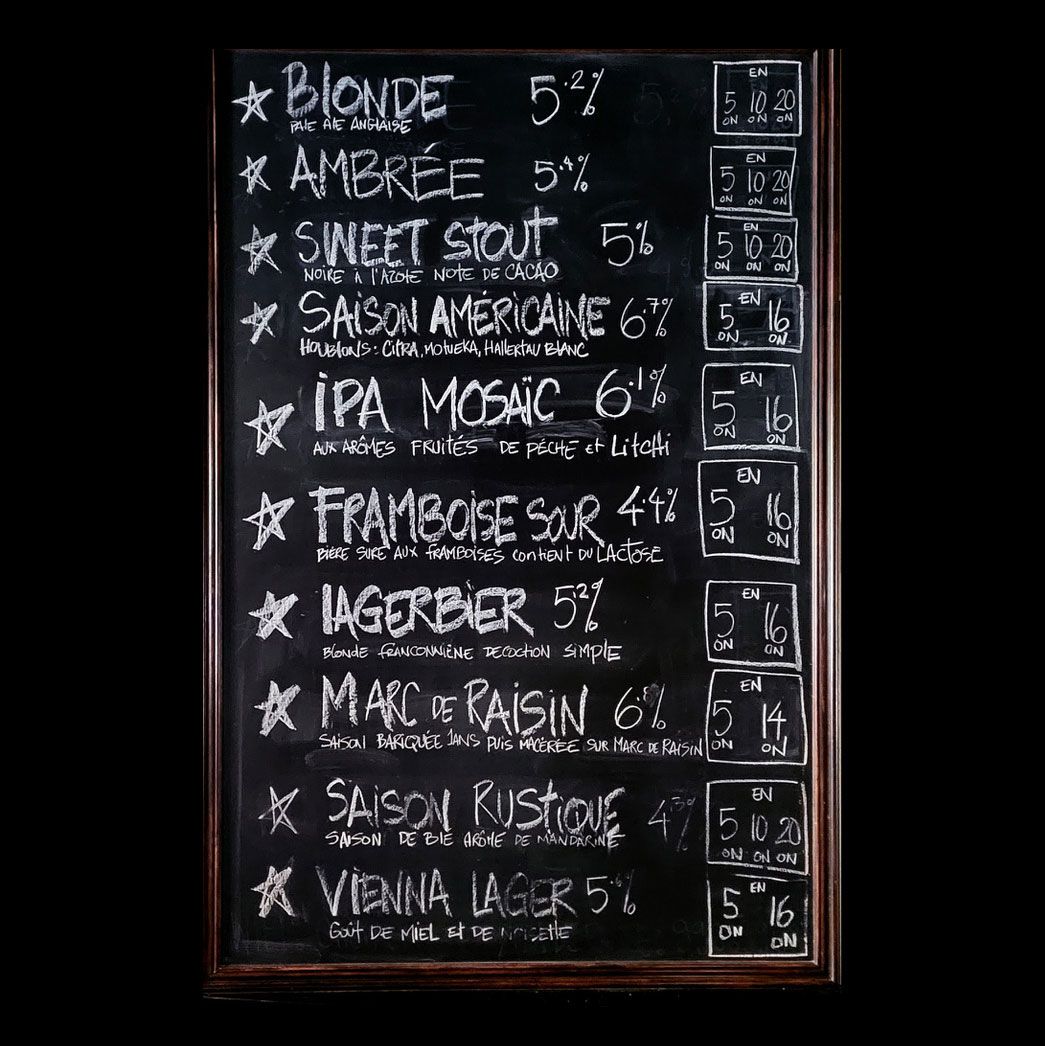 BLONDE 5.2% EN
PALE ALE ANGLAISE 5 ON 10 ON 20 ON
AMBRÉE 5.4% EN
5 ON 10 ON 20 ON
SWEET STOUT 5% EN
NOIRE À L'AZOTE NOTE DE CACAO 5 ON 10 ON 20 ON
SAISON AMÉRICAINE 6.7% EN
HOUBLONS: CITRA, MOTUEKA, HALLERTAU BLANC 5 ON 16 ON
IPA MOSAÏC 6.1% EN
AUX ARÔMES FRUITÉS DE PÉCHE et LitCHi 5 ON 16 ON
FRAMBOISE SOUR 4.4% EN
BIÈRE SURE AUX FRAMBOISES contient DU LACTOSE 5 ON 16 ON
LAGERBIER 5.2% EN
BLONDE FRANCONNIÈNE DECOCTION SIMPLE 5 ON 16 ON
MARC DE RAISIN 6.8% EN
SAISON BARIQUÉE 1ANS PUIS MACÉRÉE SUR MARC DE RAISIN 5 ON 14 ON
SAISON RUSTIQUE 4.3% EN
SAISON DE BLÉ ARÔME DE MANDARINE 5 ON 10 ON 20 ON
VIENNA LAGER EN
GOÛT DE MIEL ET DE NOISETTE 5 ON 16 ON